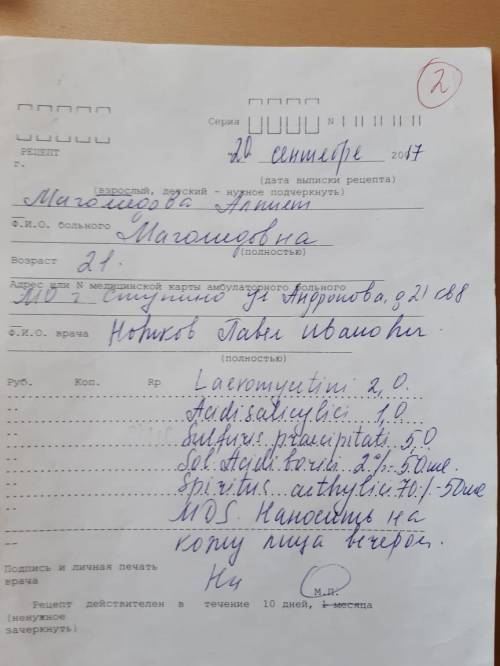 2
Серия N
20 сентября 2017
РЕЦЕПТ
г. (дата выписки рецепта)
(взрослый, детский - нужное подчеркнуть)
Магомедова
Ф.И.О. больного Магомедовна
(полностью)
Возраст 21.
Адрес или N медицинской карты амбулаторного больного
МО г Ступино ул Андропова, д 21 кв 8
Ф.И.О. врача Павел Иванович
(полностью)
Руб. Коп. Rp Laevomycetini 2,0.
Acidi salicylici 1,0.
Sulfuris praecipitati 5,0
Sol. Acidi borici 2% - 50 мл.
Spiritus aethylici 70% - 50 мл
MDS. Наносить на
кожу лица вечером.
Подпись и личная печать
врача
М.П.
Рецепт действителен в течение 10 дней, 1 месяца
(ненужное
зачеркнуть)